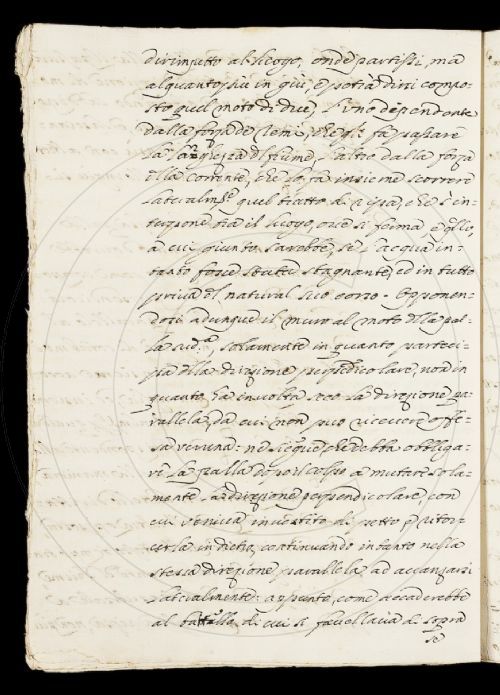 dirimpetto al luogo, onde partissi, ma
alquanto più in giù, e potrà dirsi compo-
sto quel moto di due, l'uno dependente
dalla forza de' remi, che gli fa passare
la larghezza del fiume, l'altro dalla forza
della corrente, che lo fa insieme scorrere
lateralmte quel tratto di ripa, che è in-
terposto tra il luogo, ove si ferma, e qllo,
a cui giunto sarebbe, se l'acqua in-
tanto fosse stata stagnante, ed in tutto
priva del natural suo corso. Opponen-
dosi adunque il muro al moto della pal-
la sudta, solamente in quanto parteci-
pa della direzione perpendicolare, non in
quanto ha involta seco la direzione pa-
rallela, da cui non può ricevere offe-
sa veruna: ne siegue che debba obbliga-
re la palla dopo il colpo a mutare sola-
mente la direzione perpendicolare, con
cui veniva investito di petto e ritor-
cerla indietro, continuando intanto nella
stessa direzione parallela ad avanzarsi
lateralmente: appunto, come accaderebbe
al battello di cui si favellava di sopra
se